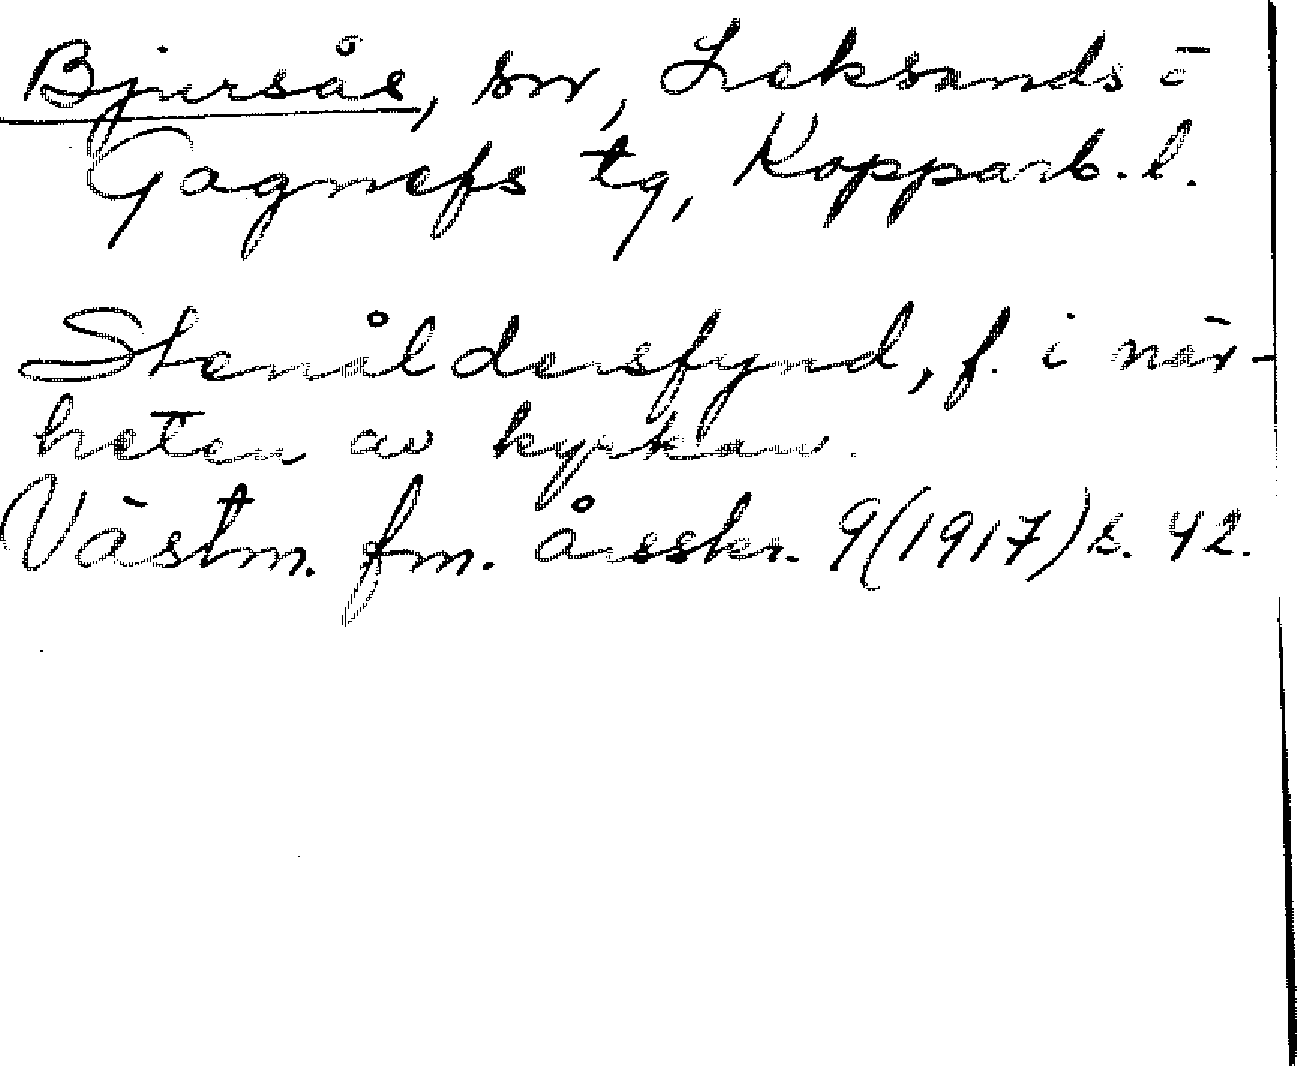 Bjursås, sn, Leksands o
Gagnefs tg, Kopparb. l.
Stenåldersfynd, f. i när-
heten av kyrkan.
Västm. fm. årsskr. 9(1917) s. 42.